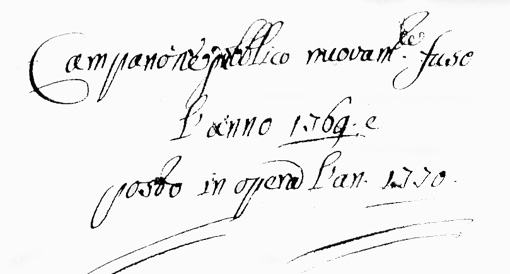 Campanone publico nuovam.te fuso
l'anno 1769. e
posto in opera l'an. 1770.